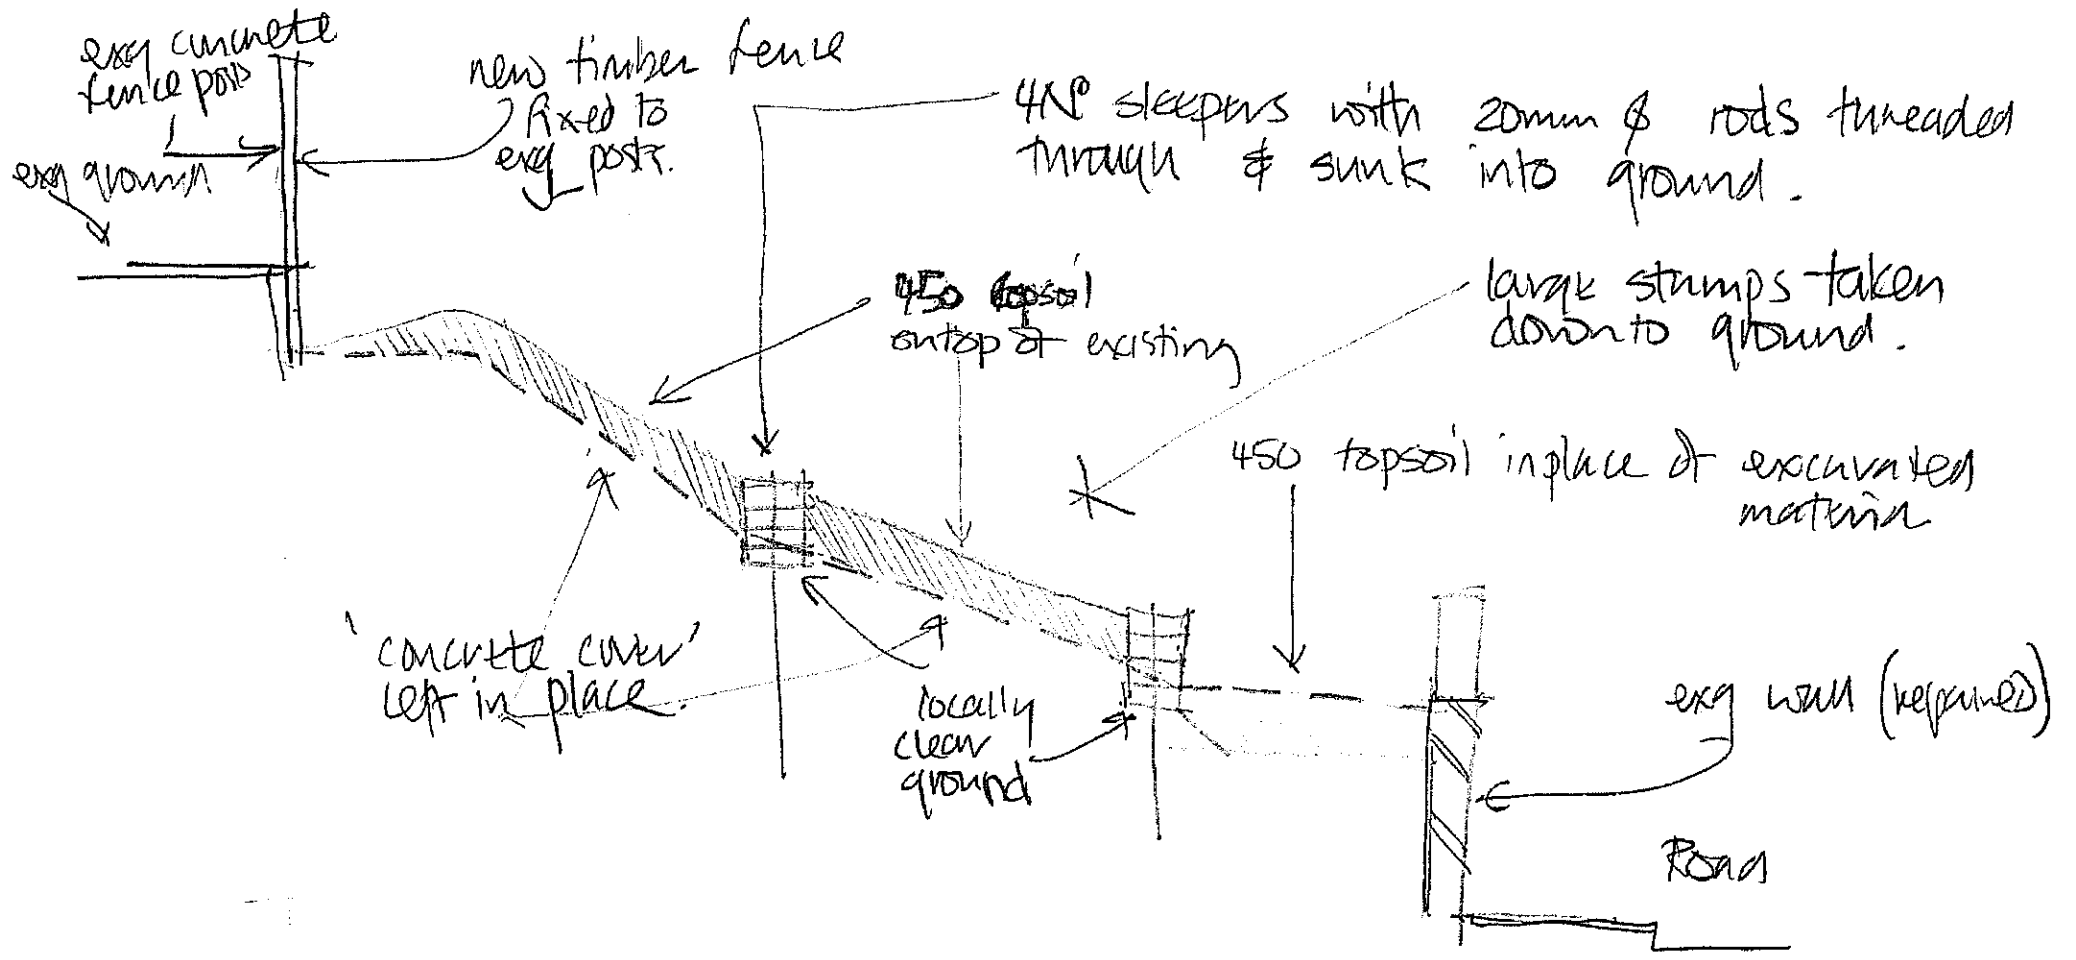 exg concrete
fence posts
exg ground
new timber fence
fixed to
exg posts.
4Nº sleepers with 20mm ϕ rods threaded
through & sunk into ground.
450 topsoil
ontop of existing
large stumps taken
down to ground.
450 topsoil in place of excavated
material
'concrete cover'
left in place.
locally
clear
ground
exg wall (repaired)
Road